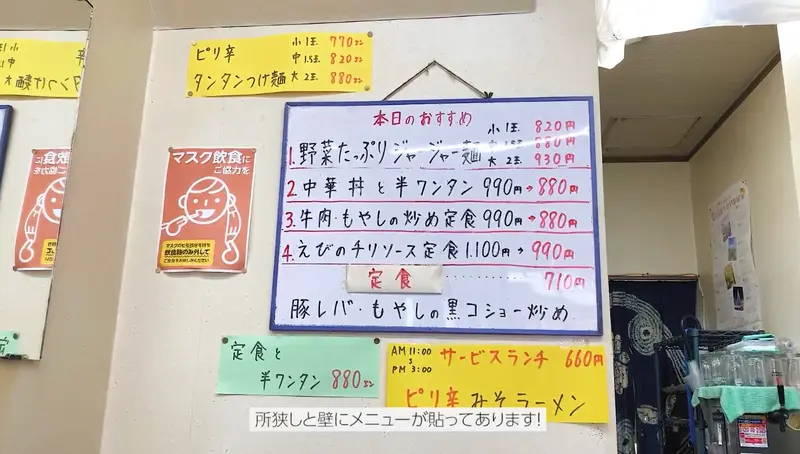 ピリ辛 小1玉 770円
中1.5玉 820円
タンタンつけ麺 大2玉 880円
本日のおすすめ
小1玉 820円
1. 野菜たっぷりジャージャー麺 中1.5玉 880円
大2玉 930円
2. 中華丼と半ワンタン 990円→880円
3. 牛肉・もやしの炒め定食 990円→880円
4. えびのチリソース定食 1.100円→990円
定食 ........... 710円
豚レバ・もやしの黒コショー炒め
マスク飲食に
ご協力を
飲食時のみ外して
定食と
半ワンタン 880円
AM 11:00
〜
PM 3:00
サービスランチ 660円
ピリ辛みそラーメン
所狭しと壁にメニューが貼ってあります!